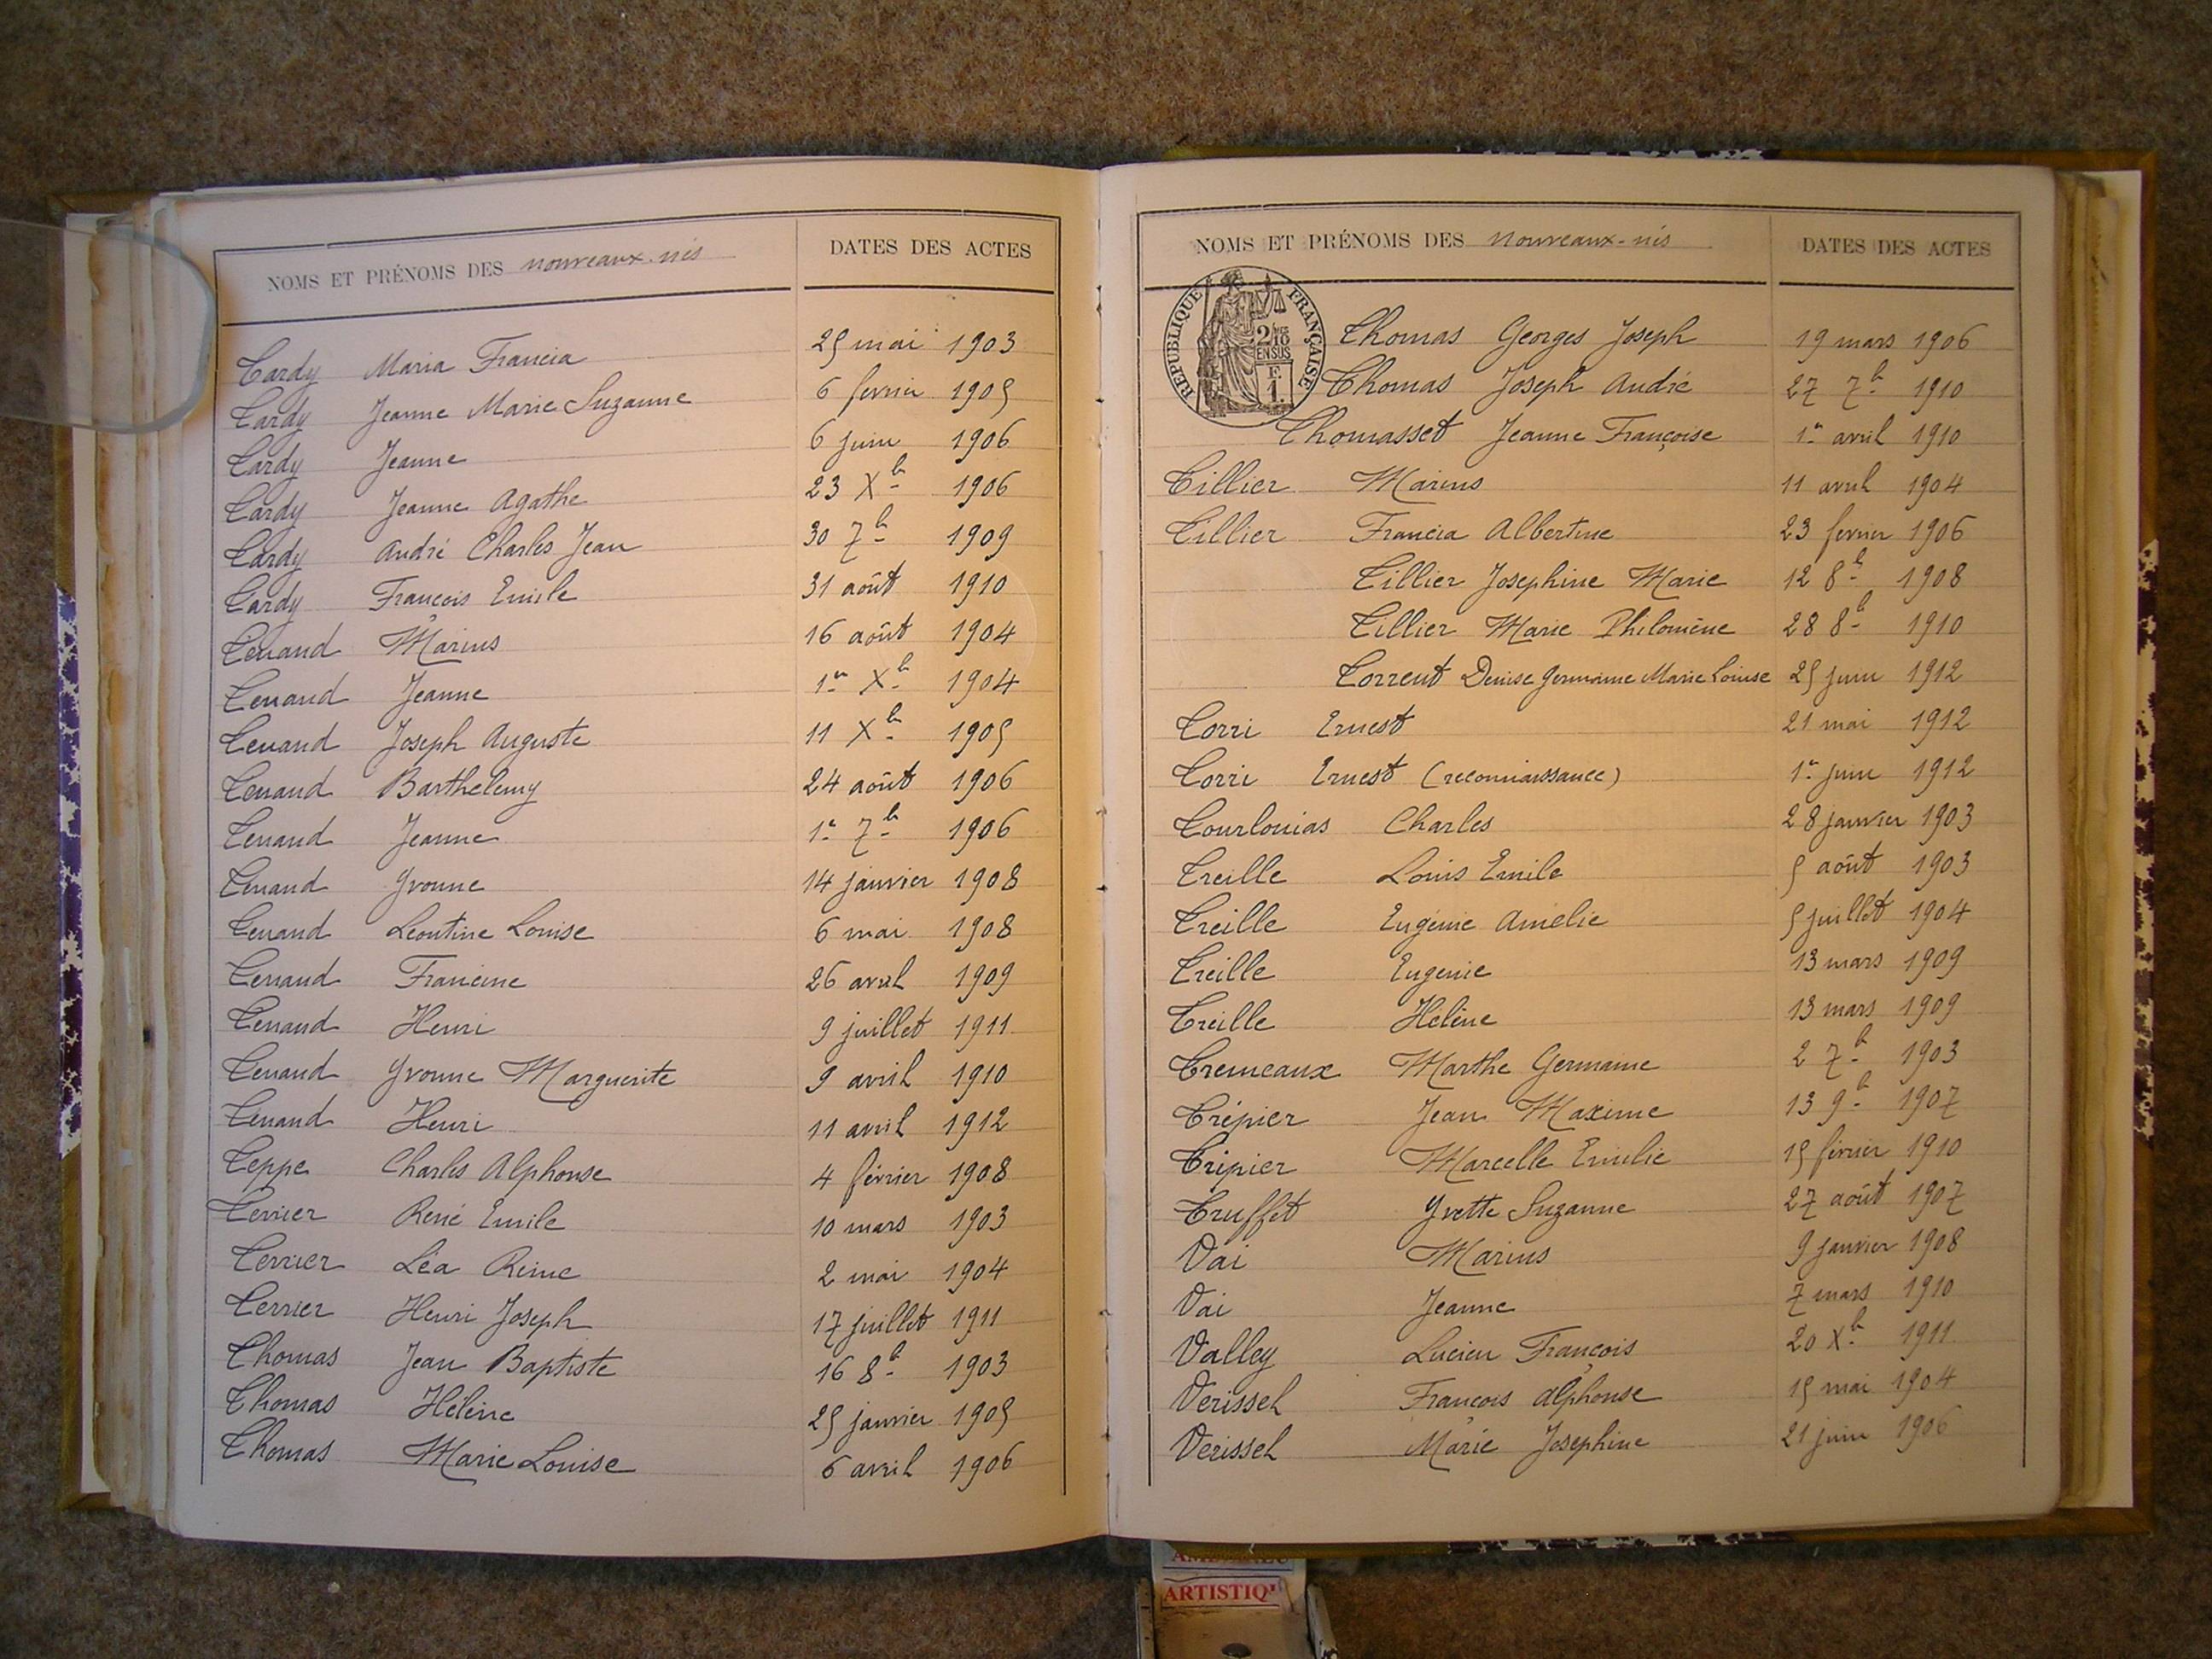 NOMS ET PRÉNOMS DES nouveaux-nés DATES DES ACTES
Tardy Maria Francia 25 mai 1903
Tardy Jeanne Marie Suzanne 6 fevrier 1905
Tardy Jeanne 6 juin 1906
Tardy Jeanne Agathe 23 Xb 1906
Tardy André Charles Jean 30 7b 1909
Tardy François Emile 31 août 1910
Tenand Marius 16 août 1904
Tenand Jeanne 1er Xb 1904
Tenand Joseph Auguste 11 Xb 1905
Tenand Barthelemy 24 août 1906
Tenand Jeanne 1er 7b 1906
Tenand Yvonne 14 janvier 1908
Tenand Léontine Louise 6 mai 1908
Tenand Francine 26 avril 1909
Tenand Henri 9 juillet 1911
Tenand Yvonne Marguerite 9 avril 1910
Tenand Henri 11 avril 1912
Teppe Charles Alphonse 4 février 1908
Terrier René Emile 10 mars 1903
Terrier Léa Reine 2 mai 1904
Terrier Henri Joseph 17 juillet 1911
Thomas Jean Baptiste 16 8b 1903
Thomas Hélène 25 janvier 1905
Thomas Marie Louise 6 avril 1906
NOMS ET PRÉNOMS DES nouveaux-nés DATES DES ACTES
RÉPUBLIQUE FRANÇAISE
2/10 EN SUS
F. 1.
Thomas Georges Joseph 19 mars 1906
Thomas Joseph André 27 7b 1910
Thomasset Jeanne Françoise 1er avril 1910
Tillier Marius 11 avril 1904
Tillier Francia Albertine 23 fevrier 1906
Tillier Josephine Marie 12 8b 1908
Tillier Marie Philomène 28 8b 1910
Torrent Denise Germaine Marie Louise 25 juin 1912
Torri Ernest 21 mai 1912
Torri Ernest (reconnaissance) 1er juin 1912
Tourlonias Charles 28 janvier 1903
Treille Louis Emile 5 août 1903
Treille Eugénie Amélie 5 juillet 1904
Treille Eugenie 13 mars 1909
Treille Hélène 13 mars 1909
Tremeaux Marthe Germaine 2 7b 1903
Trépier Jean Maxime 13 9b 1907
Trépier Marcelle Emilie 15 février 1910
Truffet Yvette Suzanne 27 août 1907
Vai Marius 9 janvier 1908
Vai Jeanne 7 mars 1910
Valley Lucien François 20 Xb 1911
Verissel François Alphonse 15 mai 1904
Verissel Marie Josephine 21 juin 1906
ARTISTIQ